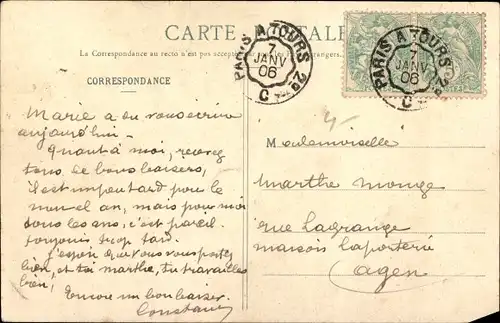 CARTE POSTALE
La Correspondance au recto n'est pas acceptée
CORRESPONDANCE
PARIS A TOURS 2°
7
JANV
06
C
PARIS A TOURS 2°
7
JANV
06
C
Marie a du vous écrire
aujourd'hui.
Quant à moi, recevez
tous de bons baisers,
il est un peu tard pour le
nouvel an, mais pour moi
tous les ans, c'est pareil.
toujours trop tard.
J'espère que vous vous portez
bien, et toi marthe, tu travailles
bien,
Encore un bon baiser.
Constant
Mademoiselle
Marthe Monge
rue Lagrange
maison Laporterie
agen